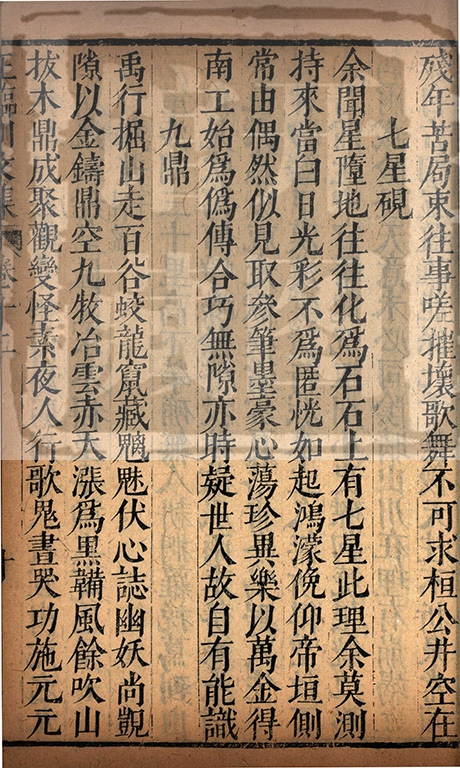 殘年苦局束往事嗟摧壞歌舞不可求桓公井空在
七星硯
余聞星墮地往往化爲石石上有七星此理余莫測
持來當白日光彩不爲匿恍如起鴻濛俛仰帝垣側
常由偶然似見取參筆墨豪心蕩珍異樂以萬金得
南工始爲僞傳合巧無隙亦時疑世人故自有能識
九鼎
禹行掘山走百谷蛟龍竄藏魑魅伏心誌幽妖尚覬
隙以金鑄鼎空九牧冶雲赤天漲爲黑韛風餘吹山
拔木鼎成聚觀變怪素夜人行歌鬼晝哭功施元元
王臨川文集 卷十二
十